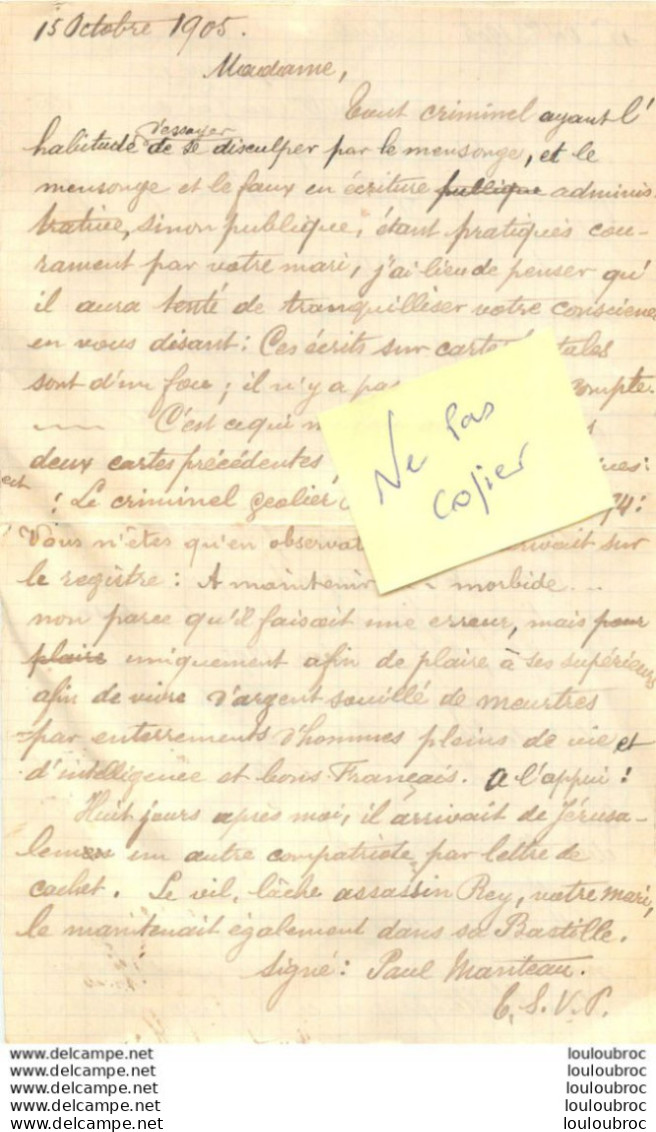 15 Octobre 1905.
Madame,
Tout criminel ayant l'
d'essayer
habitude de se disculper par le mensonge, et le
mensonge et le faux en écriture publique adminis-
trative, sinon publique, étant pratiqués cou-
rament par votre mari, j'ai lieu de penser qu'
il aura tenté de tranquilliser votre conscience
en vous disant : Ces écrits sur cartes
sont d'un fou ; il n'y a pas compte.
C'est ce qui
deux cartes précédentes
! Le criminel geôlier 74 :
Vous n'êtes qu'en sur
le registre : A maintenir morbide...
non parce qu'il faisait une erreur, mais pour
plaire uniquement afin de plaire à ses supérieurs
afin de vivre d'argent souillé de meurtres
par enterrements d'hommes pleins de vie et
d'intelligence et bons Français. A l'appui :
Huit jours après moi, il arrivait de Jérusa-
lem un autre compatriote par lettre de
cachet. Le vil, lâche assassin Rey, votre mari,
le maintenait également dans sa Bastille.
Signé : Paul Manteau.
T.S.V.P.
Ne pas
copier
www.delcampe.net louloubroc
www.delcampe.net louloubroc
www.delcampe.net louloubroc
www.delcampe.net louloubroc
www.delcampe.net louloubroc